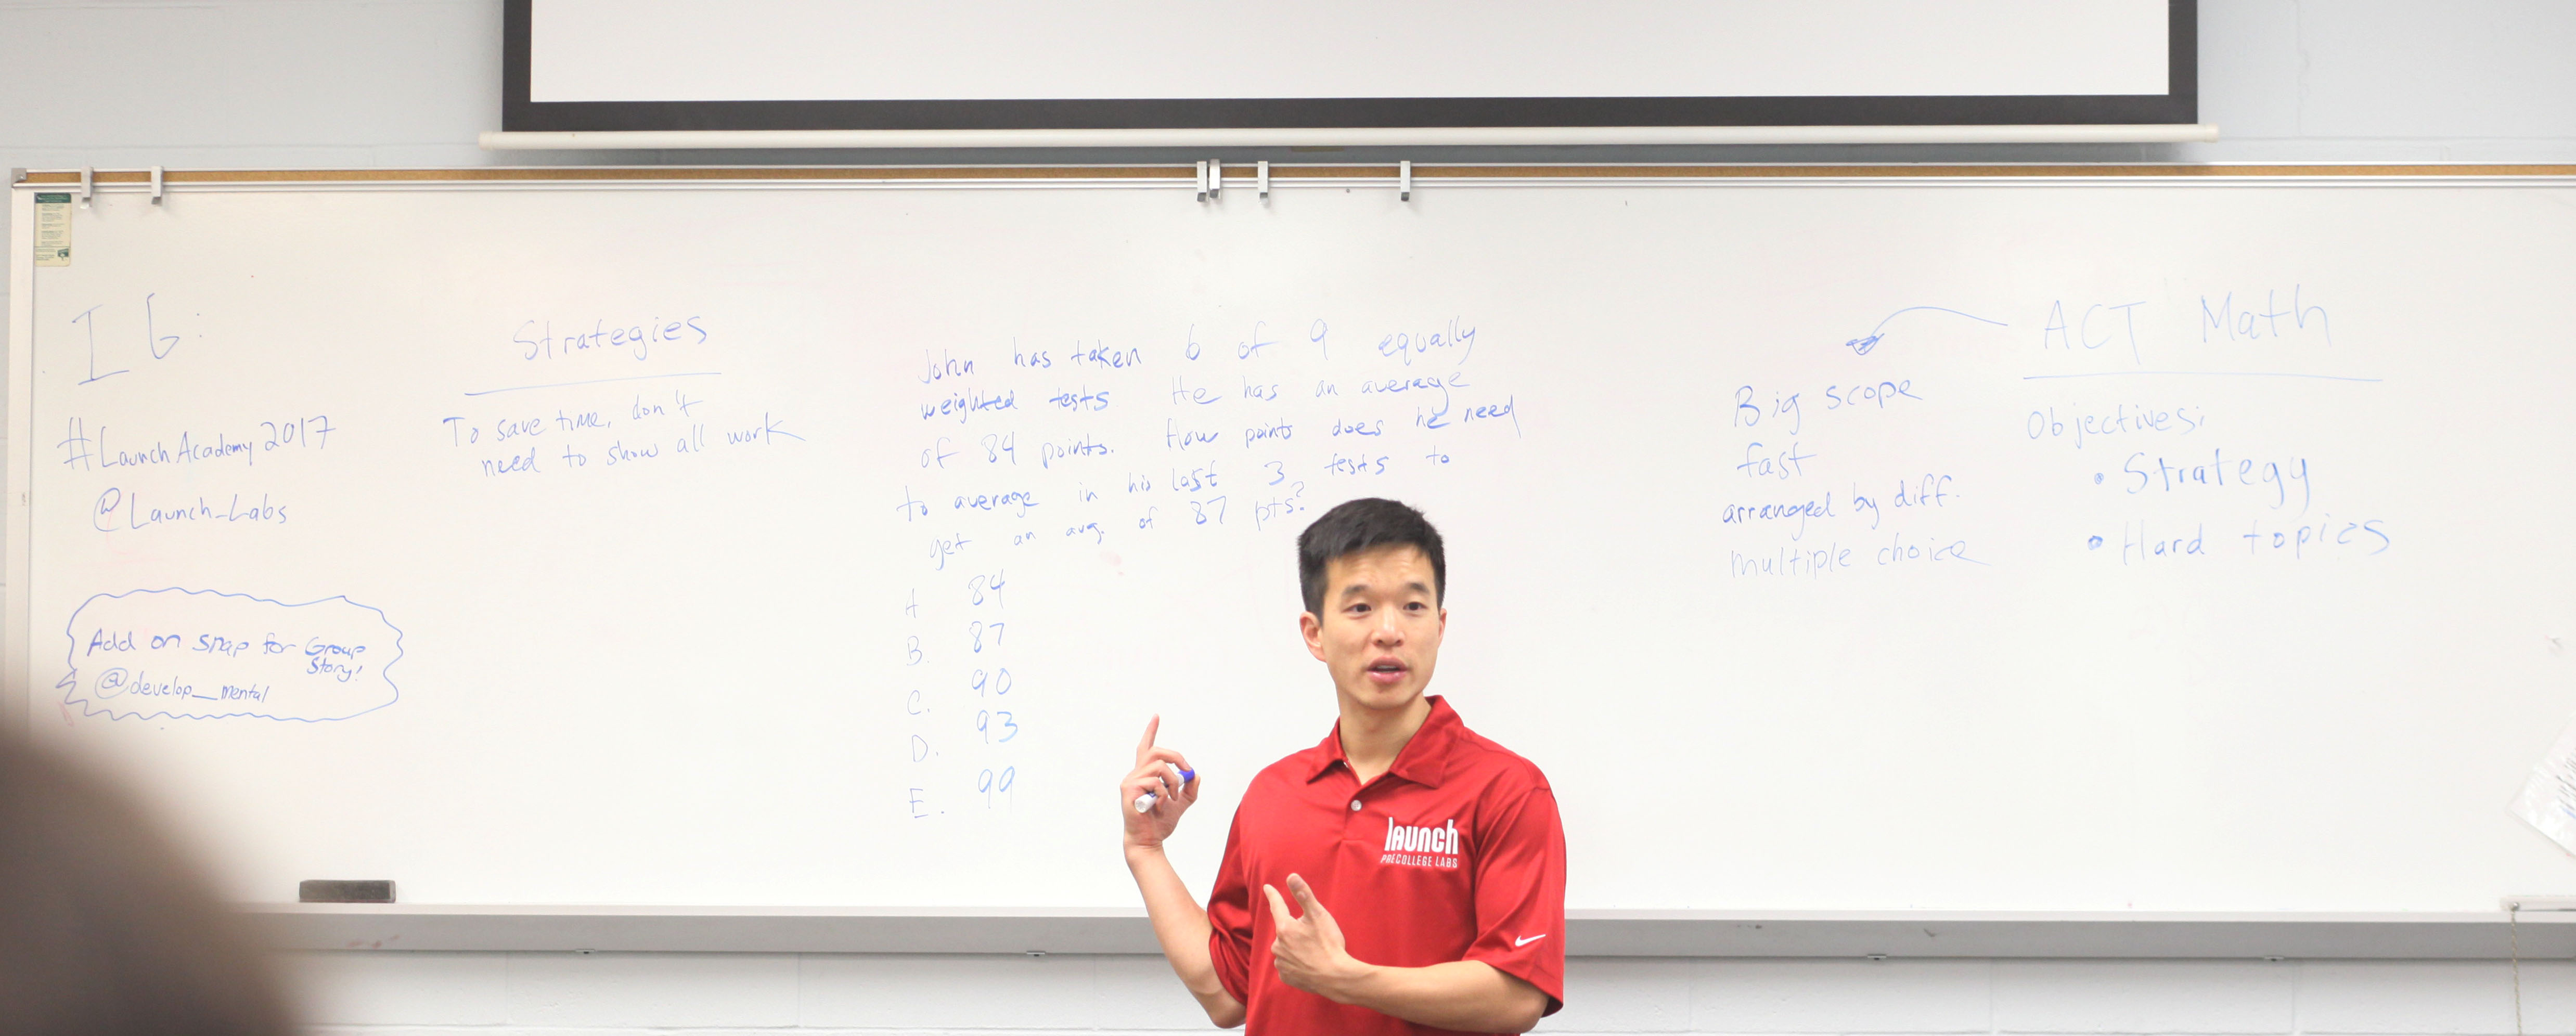 IG:
#LaunchAcademy2017
@Launch_Labs
Add on snap for Group
Story!
@develop__mental
Strategies
To save time, don't
need to show all work
John has taken 6 of 9 equally
weighted tests He has an average
of 84 points. How points does he need
to average in his last 3 tests to
get an avg. of 87 pts?
A 84
B. 87
C. 90
D. 93
E. 99
Big scope
fast
arranged by diff.
multiple choice
ACT Math
Objectives:
• Strategy
• Hard topics
launch
PRECOLLEGE LABS